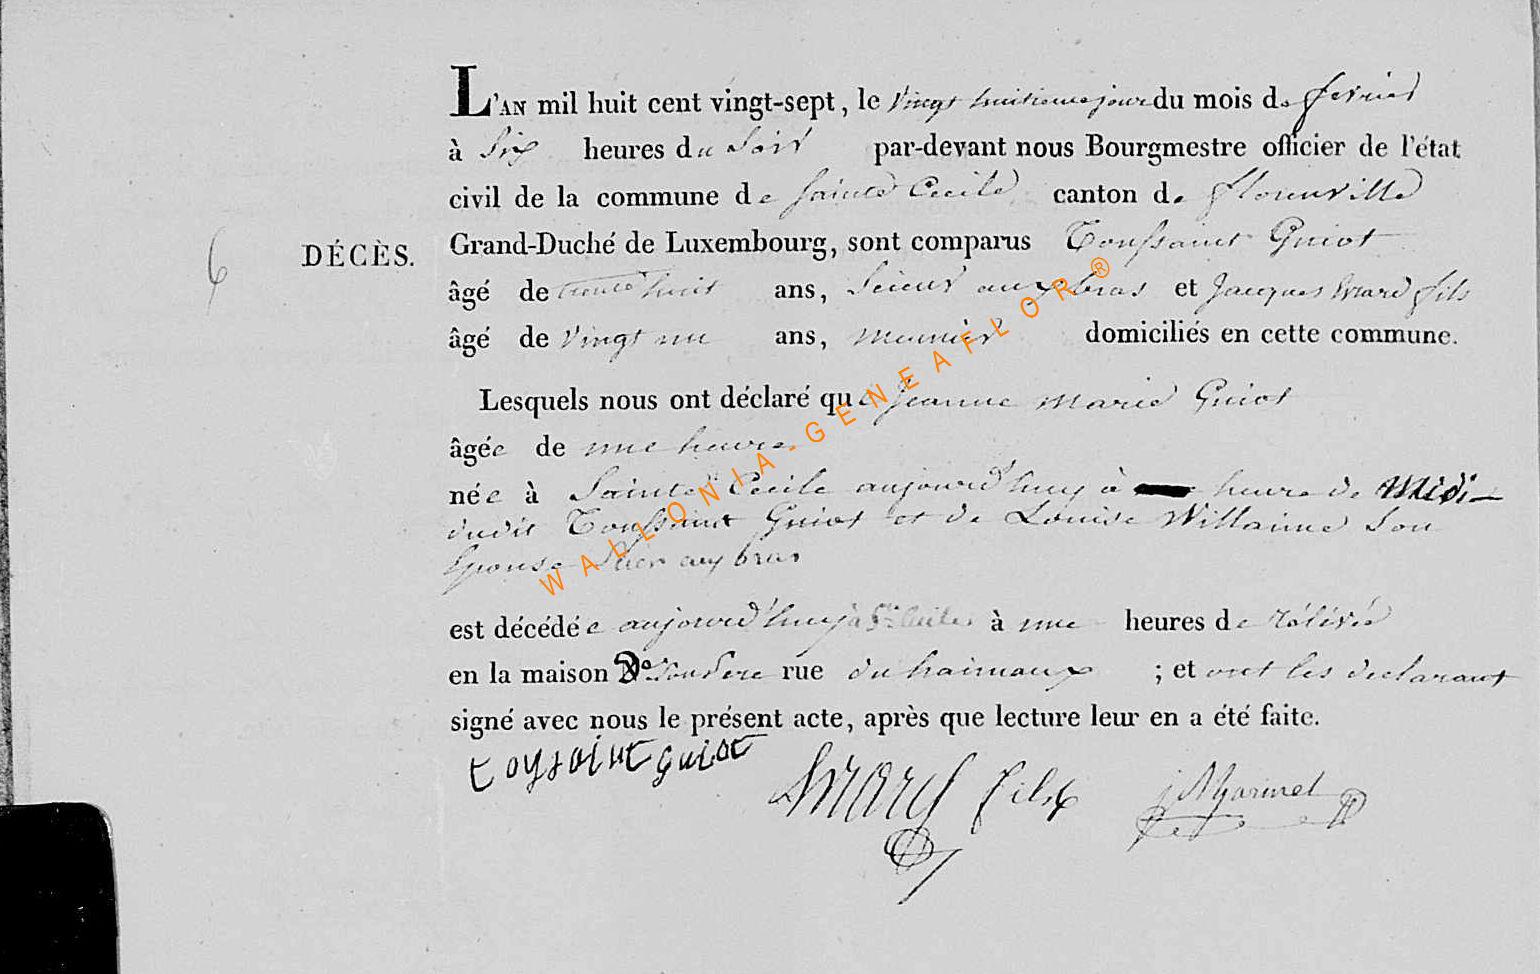 L'AN mil huit cent vingt-sept, le vingt huitieme jour du mois de fevrier
à Six heures du Soir par-devant nous Bourgmestre officier de l'état
civil de la commune de Sainte Cecile canton de florenville
6 DÉCÈS. Grand-Duché de Luxembourg, sont comparus Toussaint Guiot
âgé de trente huit ans, Scieur aux bras et Jacques fils
âgé de vingt un ans, meunier domiciliés en cette commune.
Lesquels nous ont déclaré que jeanne marie Guiot
âgée de une heure
née à Sainte Cecile aujourd'huy à heure de Midi
dudit Toussaint Guiot et de Louise Willaime Son
Epouse aux bras
est décédée aujourd'huy à Ste Cecile à une heures de relévé
en la maison rue du ; et ont les declarant
signé avec nous le présent acte, après que lecture leur en a été faite.
toussaint guiot fils
WALLONIA-GENEAFLOR®